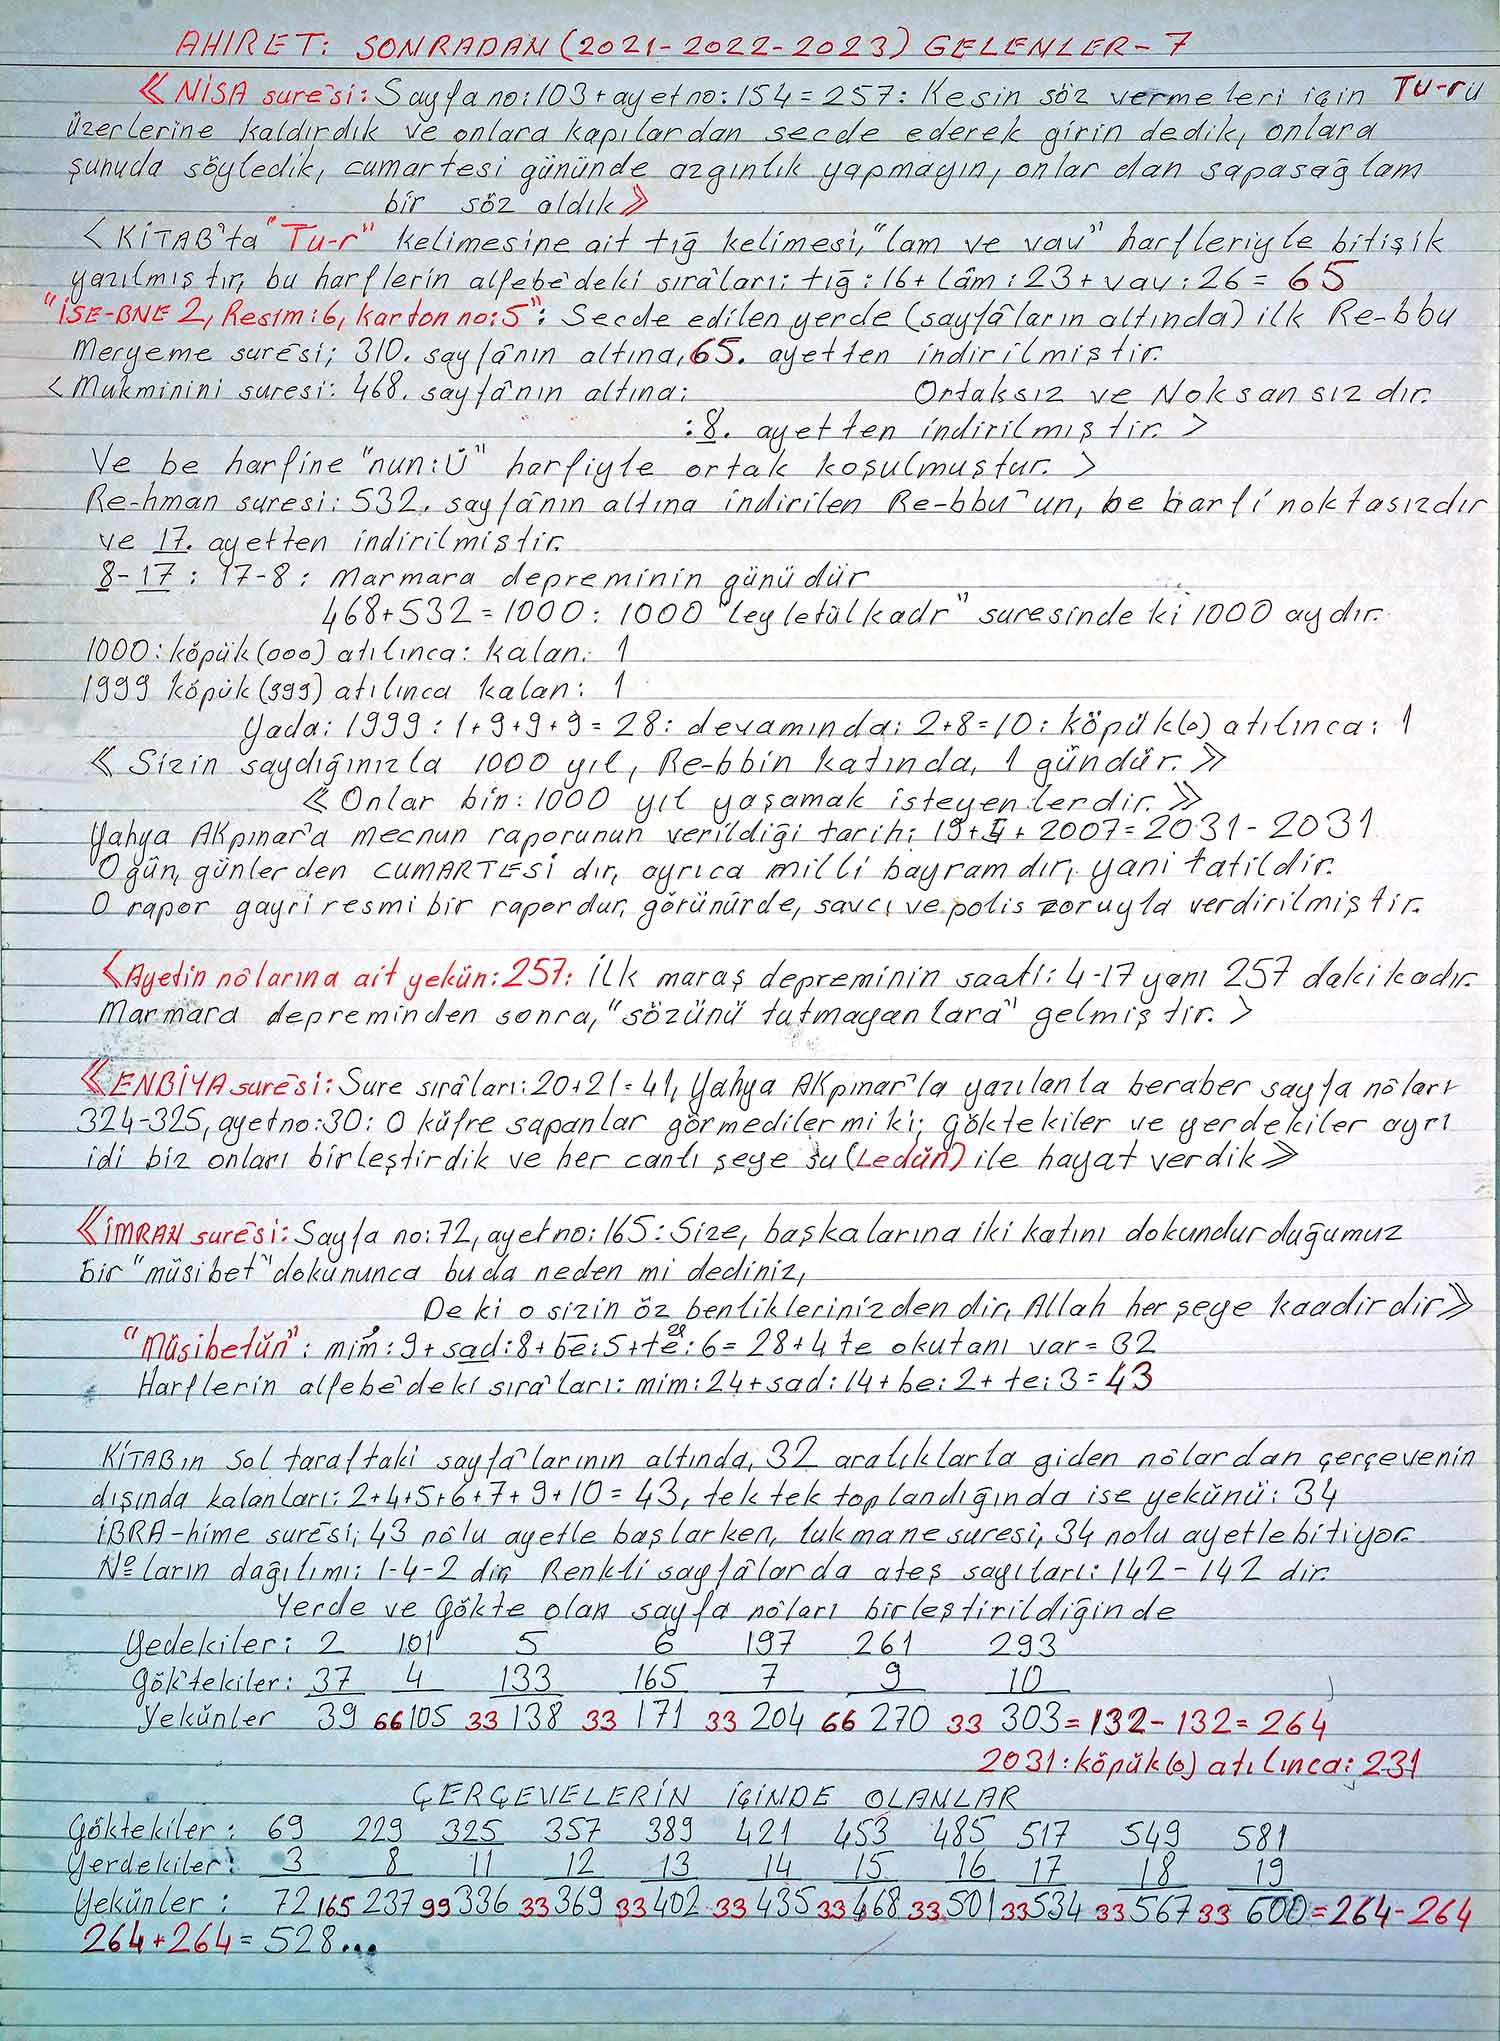 AHIRET: SONRADAN (2021-2022-2023) GELENLER-7
《NİSA surêsi: Sayfa no: 103 + ayet no: 154 = 257: Kesin söz vermeleri için Tu-ru
üzerlerine kaldırdık ve onlara kapılardan secde ederek girin dedik, onlara
şunuda söyledik, cumartesi gününde azgınlık yapmayın, onlar dan sapasağlam
bir söz aldık》
<KİTAB'ta "Tu-r" kelimesine ait tığ kelimesi, "lam ve vav" harfleriyle bitişik
yazılmıştır, bu harflerin alfebê'deki sırâları: tığ: 16 + lâm: 23 + vav: 26 = 65
"İSE-BNE 2, Resim: 6, karton no: 5": Secde edilen yerde (sayfâların altında) ilk Re-bbu
Meryeme surêsi; 310. sayfânın altına, 65. ayetten indirilmiştir.
<Mukminini suresi: 468. sayfânın altına: Ortaksız ve Noksansızdır.
: 8. ayetten indirilmıştir. >
Ve be harfine "nun: Ü" harfiyle ortak koşulmuştur. >
Re-hman suresi: 532. sayfânın altına indirilen Re-bbu'un, be harfi noktasızdır
ve 17. ayetten indirilmiştir.
8-17 : 17-8 : Marmara depreminin günüdür
468+532 = 1000 : 1000 "leyletülkadr" suresinde ki 1000 aydır.
1000: köpük (000) atılınca: kalan: 1
1999 köpük (999) atılınca kalan: 1
Yada: 1999 : 1+9+9+9 = 28: devamında: 2+8=10: köpük(o) atılınca: 1
《Sizin saydığınızla 1000 yıl, Re-bbin katında, 1 gündür.》
《Onlar bin: 1000 yıl yaşamak isteyenlerdir.》
Yahya AKpınar'a mecnun raporunun verildiği tarih: 19+5+2007=2031-2031
O gün, günlerden CUMARTESİ dır, ayrıca milli bayramdır, yani tatildir.
O rapor gayri resmi bir rapordur, görünürde, savcı ve polis zoruyla verdirilmiştir.
<Ayetin nôlarına ait yekün: 257: İlk maraş depreminin saati: 4-17 yanı 257 dakikadır.
Marmara depreminden sonra, "sözünü tutmayanlara" gelmiştir. >
《ENBİYA surêsi: Sure sırâları: 20+21=41, Yahya AKpınar'la yazılanla beraber sayfa nôları
324-325, ayet no: 30: O küfre sapanlar görmediler mi ki; göktekiler ve yerdekiler ayrı
idi biz onları birleştirdik ve her canlı şeye su (Ledün) ile hayat verdik》
《İMRAN surêsi: Sayfa no: 72, ayet no: 165: Size, başkalarına iki katını dokundurduğumuz
bir "müsibet" dokununca buda neden mi dediniz,
De ki o sizin öz benliklerinizden dir, Allah her şeye kaadirdir》
"Müsibetün": mim: 9 + sad: 8 + be: 5 + te: 6 = 28 + 4 te okutanı var = 32
Harflerin alfebê'deki sırâları: mim: 24 + sad: 14 + be: 2 + te: 3 = 43
KİTABın Sol taraftaki sayfâlarının altında, 32 aralıklarla giden nôlardan çerçevenin
dışında kalanları: 2+4+5+6+7+9+10=43, tek tek toplandığında ise yekünü: 34
İBRA-hime surêsi, 43 nôlu ayetle başlarken, lukmane suresi, 34 nolu ayetle bitiyor.
Nº ların dağılımı: 1-4-2 dir, Renkli sayfâlarda ateş sayıları: 142-142 dir.
Yerde ve Gökte olan sayfa nôları birleştirildiğinde
Yedekiler: 2 101 5 6 197 261 293
Gök'tekiler: 37 4 133 165 7 9 10
Yekünler 39 66 105 33 138 33 171 33 204 66 270 33 303 = 132-132 = 264
2031: köpük(o) atılınca: 231
ÇERÇEVELERİN İÇİNDE OLANLAR
Göktekiler: 69 229 325 357 389 421 453 485 517 549 581
Yerdekiler: 3 8 11 12 13 14 15 16 17 18 19
Yekünler: 72 165 237 99 336 33 369 33 402 33 435 33 468 33 501 33 534 33 567 33 600 = 264-264
264+264=528...